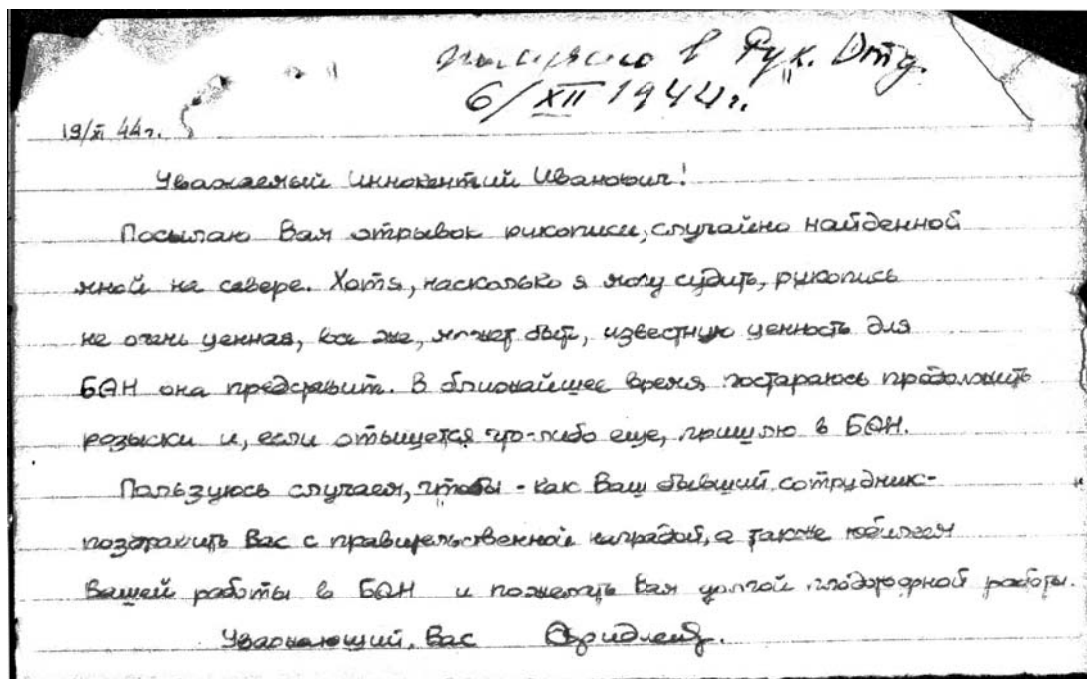 в Рук. Отд.
6/XII 1944 г.
19/XI 44 г.
Уважаемый Иннокентий Иванович!
Посылаю Вам отрывок рукописи, случайно найденной
мной на севере. Хотя, насколько я могу судить, рукопись
не очень ценная, все же, может быть, известную ценность для
БАН она представит. В ближайшее время постараюсь продолжить
розыски и, если отыщется что-либо еще, пришлю в БАН.
Пользуюсь случаем, чтобы - как Ваш бывший сотрудник -
поздравить Вас с правительственной наградой, а также юбилеем
Вашей работы в БАН и пожелать Вам долгой плодотворной работы.
Уважающий Вас